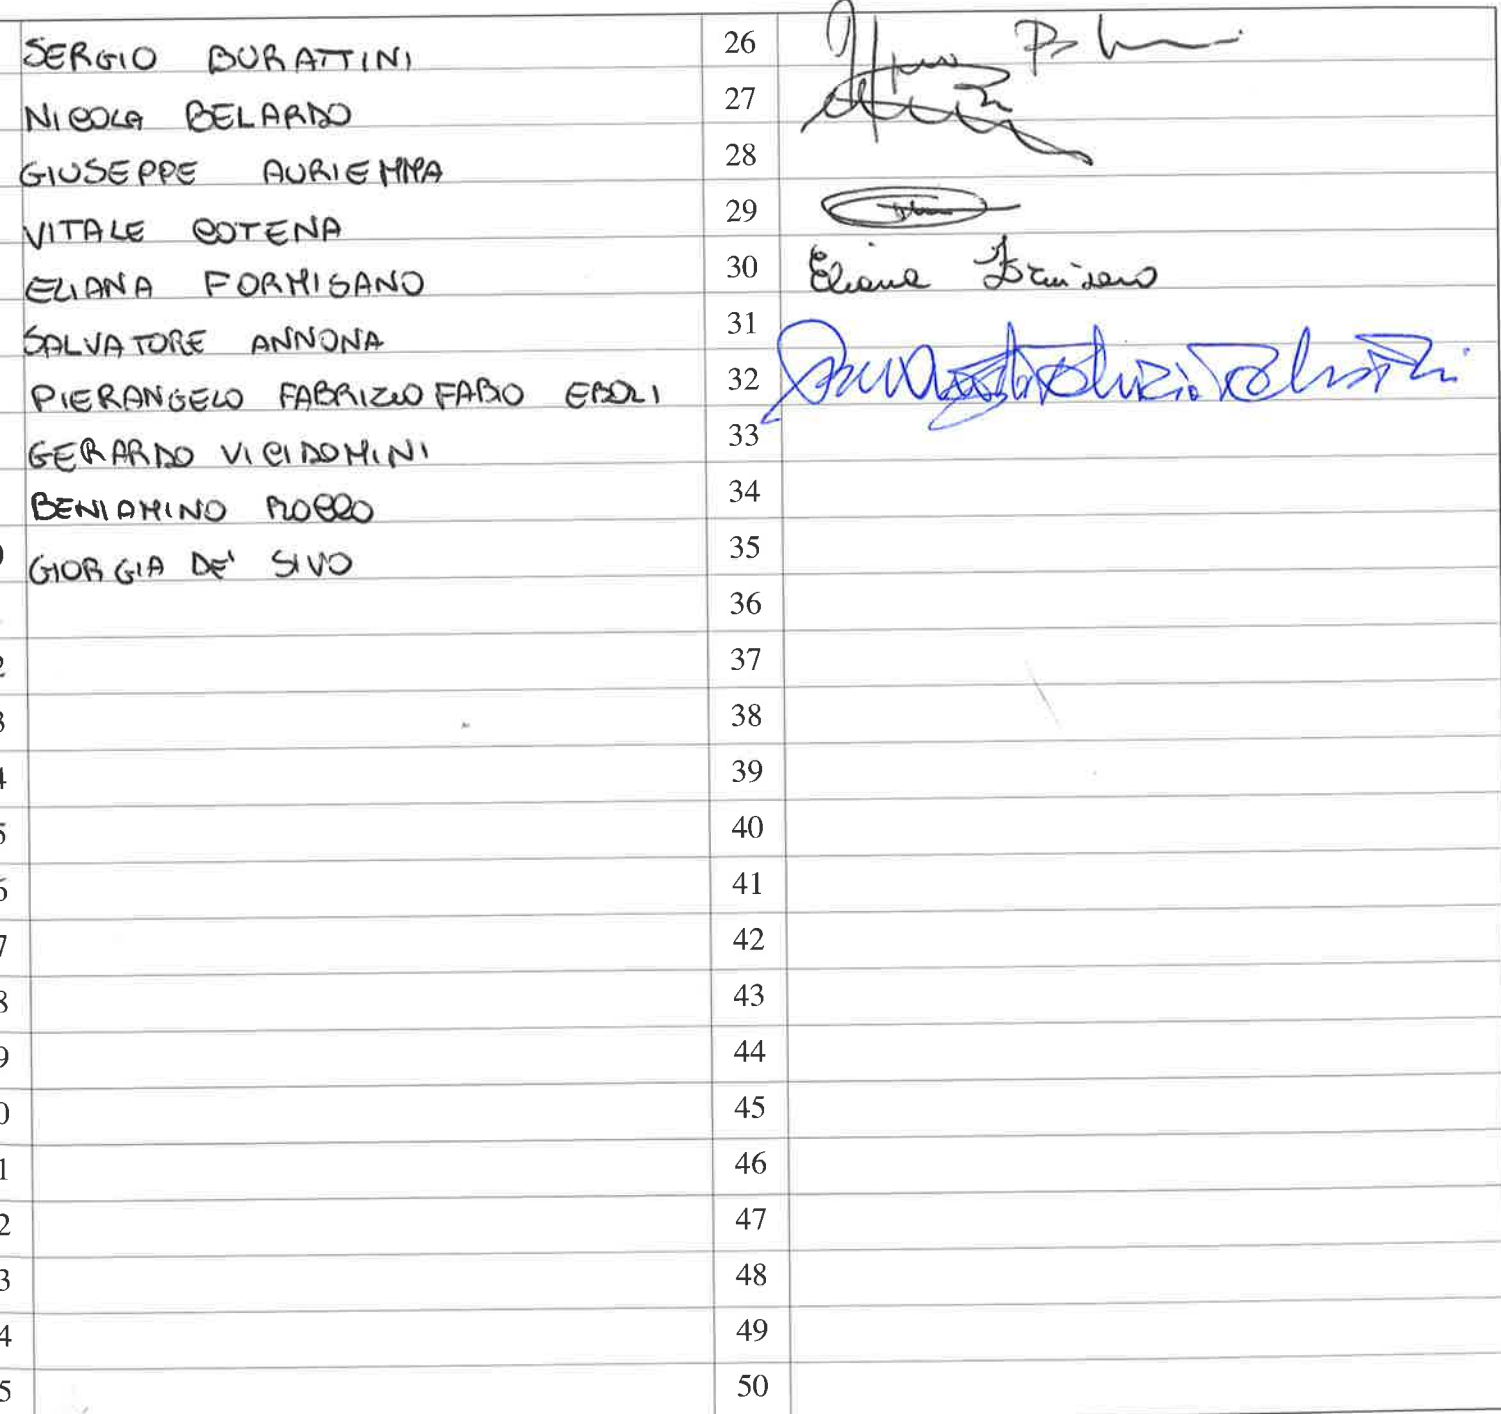 SERGIO BURATTINI 26
NICOLA BELARDO 27
GIUSEPPE AURIEMMA 28
VITALE COTENA 29
ELIANA FORMISANO 30 Eliana Formisano
SALVATORE ANNONA 31
PIERANGELO FABRIZIO FABIO EBOLI 32
GERARDO VICIDOMINI 33
BENIAMINO ROCCO 34
GIORGIA DE' SIVO 35
36
37
38
39
40
41
42
43
44
45
46
47
48
49
50